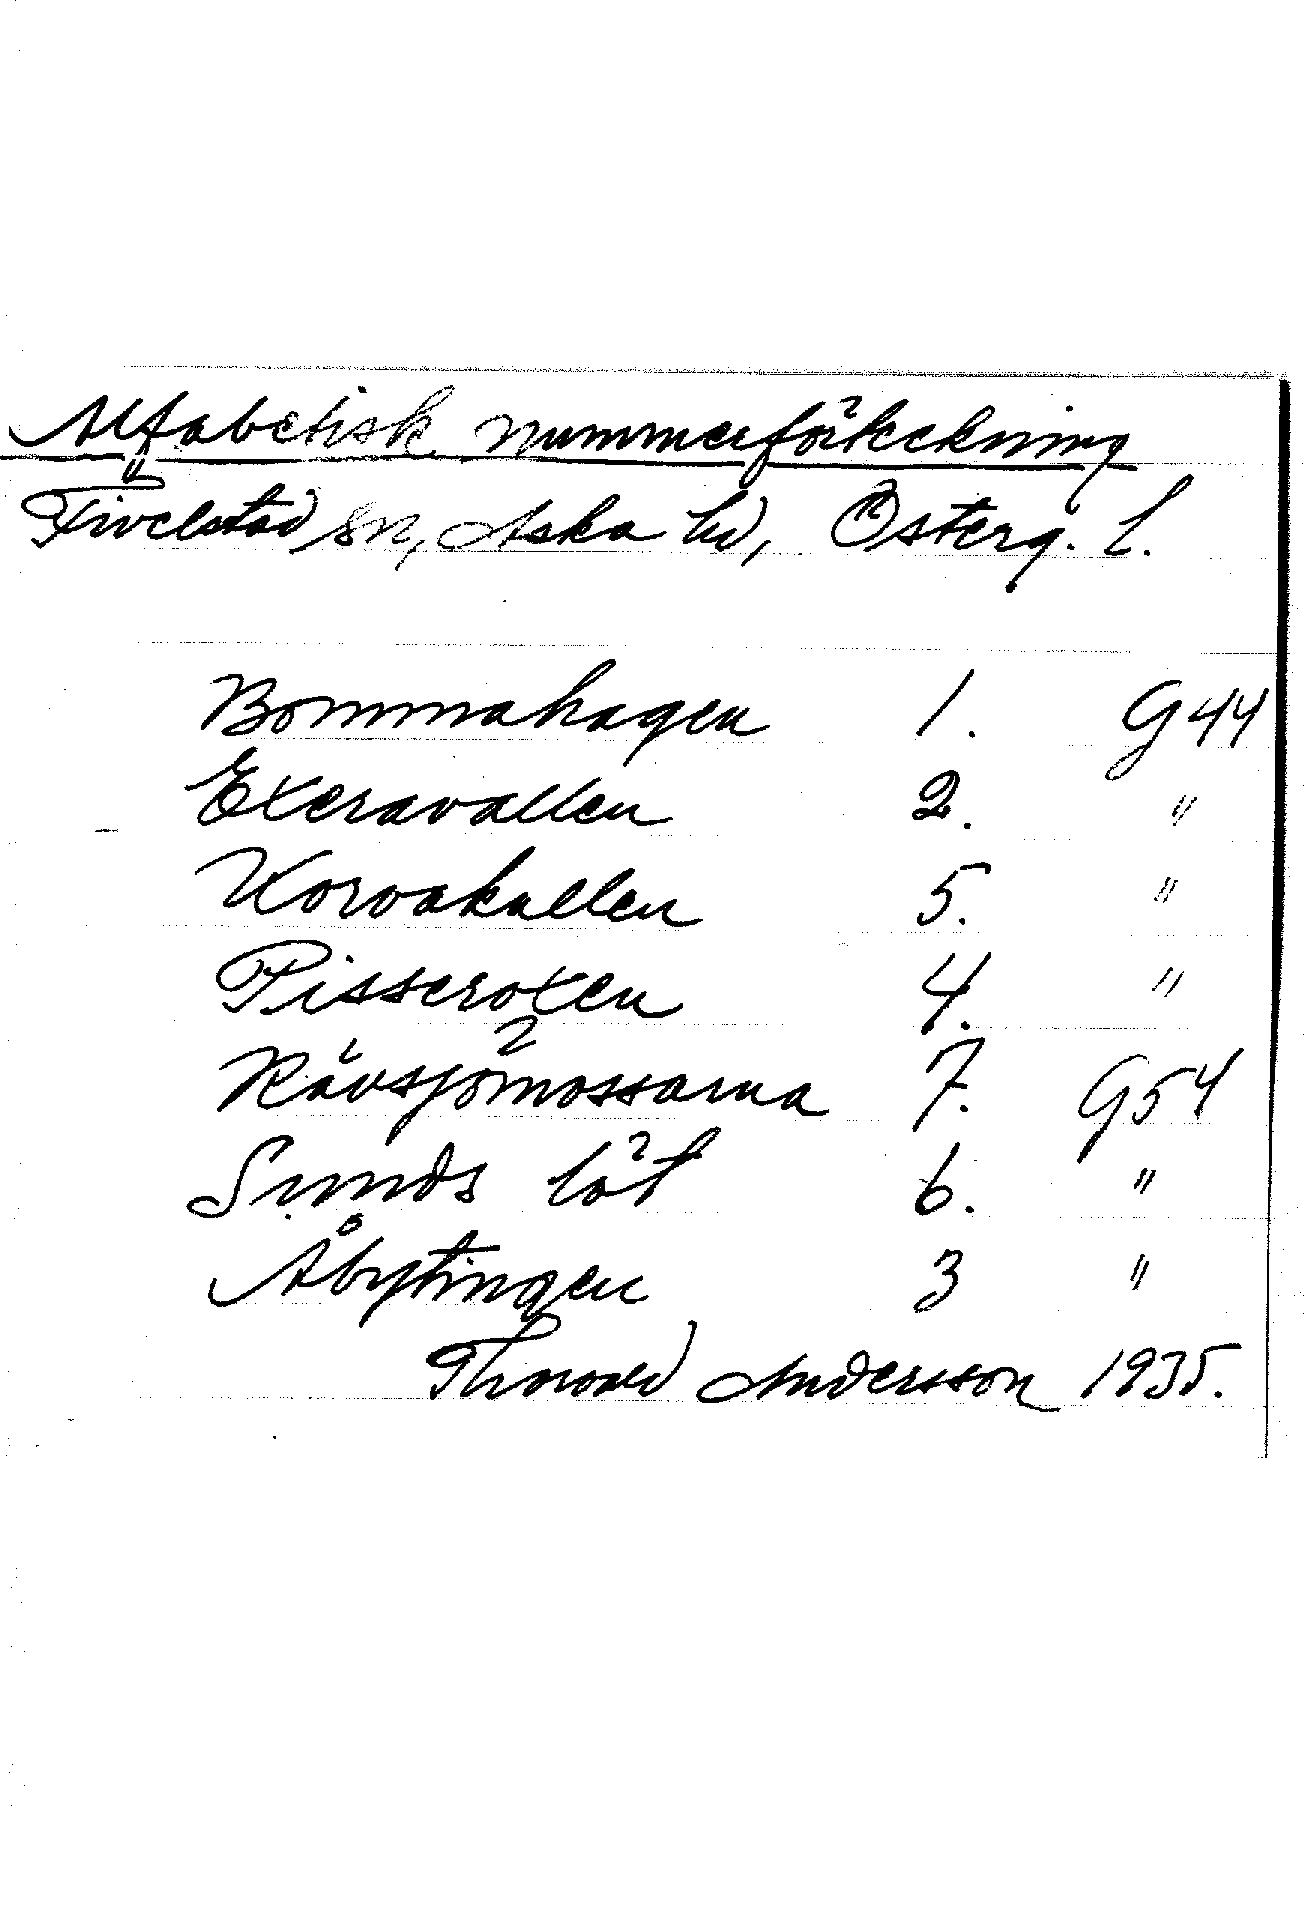 Alfabetisk nummerförteckning
Fivelstad sn, Aska hd, Österg. l.
Bommahagen 1. G44
Exeravallen 2. "
Korvakallen 5. "
Pisseroxen 4. "
Rävsjömossarna 7. G54
Sunds löt 6. "
Åbytingen 3 "
Thorvald Andersson 1935.